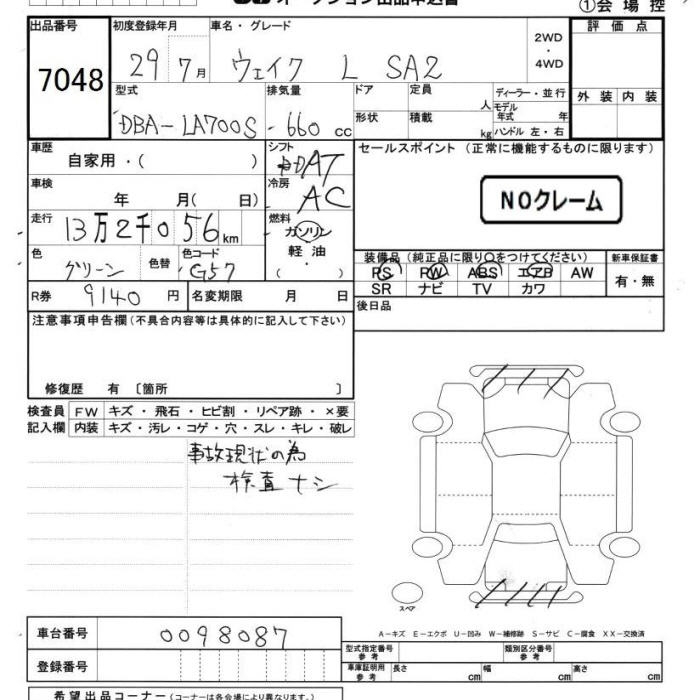 オークション出品申込書
①会場控
出品番号 初度登録年月 車名・グレード 2WD ・ 4WD 評価点
7048 29 7月 ウェイク L SA2
型式 排気量 ドア 定員 人 ディーラー・並行 外装 内装
DBA-LA700S 660 cc 形状 積載 kg モデル年式 年 ハンドル 左・右
車歴 シフト セールスポイント (正常に機能するものに限ります)
自家用・( ) AT
車検 冷房
年 月( 日) AC NOクレーム
走行 燃料
13万2千056km ガソリン
軽油
( )
色 色替 色コード 装備品 (純正品に限り○をつけてください) 新車保証書
グリーン G57 PS PW ABS エアB AW 有・無
SR ナビ TV カワ
R券 9140円 名変期限 月 日 後日品
注意事項申告欄(不具合内容等は具体的に記入して下さい)
修復歴 有 〔箇所 〕
検査員 FW キズ・飛石・ヒビ割・リペア跡・×要
記入欄 内装 キズ・汚レ・コゲ・穴・スレ・キレ・破レ
事故現状の為
検査ナシ
スペア
A-キズ E-エクボ U-凹み W-補修跡 S-サビ C-腐食 XX-交換済
車台番号 0098087 型式指定番号 参考 類別区分番号 参考
登録番号 車庫証明用 参考 長さ cm 幅 cm 高さ cm
希望出品コーナー(コーナーは各会場により異なります)